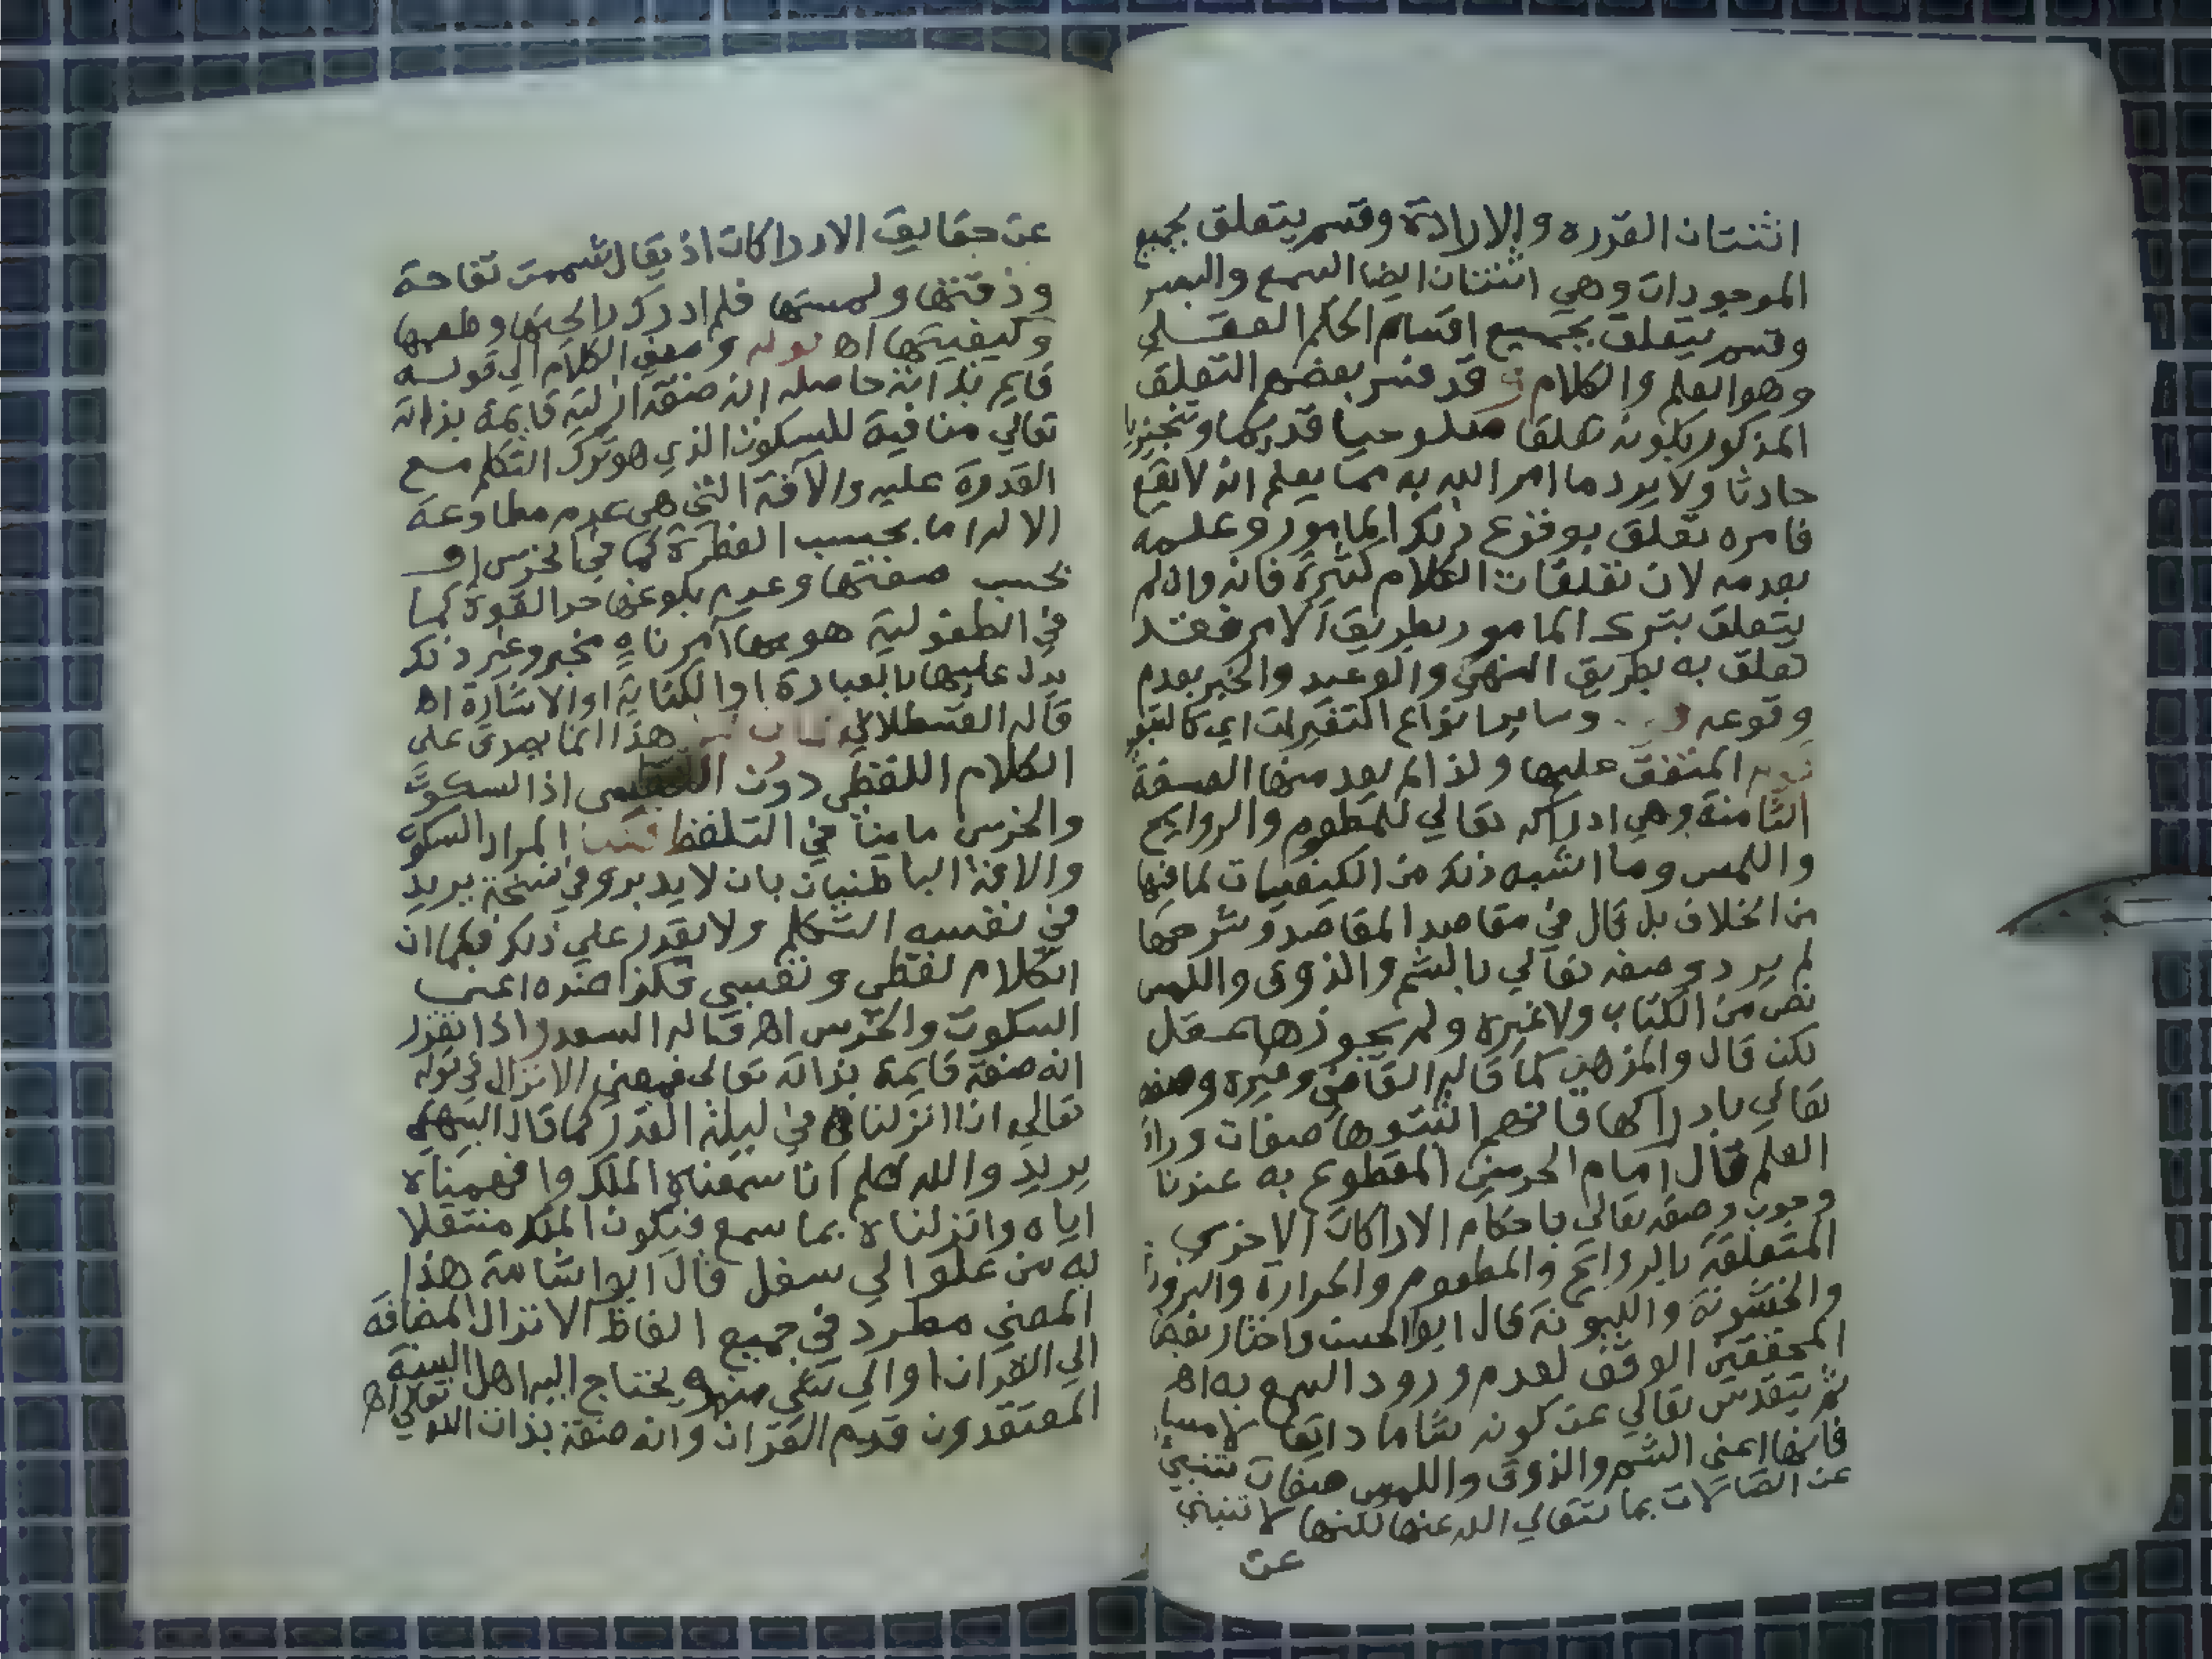 اثنتان القدره والارادة وقسم يتعلق بجميع
الموجودات وهي اثنتان ايضا السمع والبصر
وقسم يتعلق بجميع اقسام الحكم العقلي
وهو العلم والكلام وقد فسر بعضهم التعلق
المذكور بكونه تعلقا صلوحيا قديما وتنجيزيا
حادثا ولا يرد ما امر الله به مما يعلم انه لا يقع
فامره تعلق بوقوع ذلك المامور وعلمه
بعدمه لان تعلقات الكلام كثيرة فانه وان لم
يتعلق بترك المامور بطريق الامر فقد
تعلق به بطريق النهي والوعيد والخبر بعدم
وقوعه وساير انواع التغيرات اي كالتنو
المتفق عليها ولذا لم يعد منها الصفة
الثامنة وهي ادراكه تعالي للمطعوم والروايح
واللمس وما اشبه ذلك من الكيفيات لما فيها
من الخلاف بل قال في مقاصد المقاصد وشرحها
لم يرد وصفه تعالي بالشم والذوق واللمس
نص من الكتاب ولا غيره ولم يجوزها عقل
لكن قال والمذهب كما قاله القاضي وغيره وصفه
تعالي بادراكها فانهم اثبتوها صفات وراء
العلم قال امام الحرمين المقطوع به عندنا
وجوب وصفه تعالي باحكام الاداكات الاخري
المتعلقة بالروائح والمطعوم والحرارة والبرودة
والخشونة والليونة قال ابو الحسن واختار بعض
المحققين الوقف لعدم ورود السمع به اه
ثم يتقدس تعالي عن كونه شاما دايقا لامسا
فانها اعني الشم والذوق واللمس صفات تنبي
عن اتصالات بما يتعالي الله عنها لكنها لا تنبي
عن
عن حقايق الادراكات اذ يقال شممت تفاحة
وذقتها ولمستها فلم ادرك رائحتها وطعمها
وكيفيتها اه قوله ومعني الكلام الي قوله
قايم بذاته حاصله انه صفة ازلية قايمة بذاته
تعالي منافية للسكون الذي هو ترك التكلم مع
القدرة عليه والآفة التي هي عدم مطاوعة
الالة اما بحسب الفطرة كما في الخرس او
بحسب ضعفها وعدم بلوغها حد القوة كما
في الطفولية هو بها آمر ناهٍ مخبر وغير ذلك
يدل عليها بالعبارة او الكتابة او الاشارة اه
قاله القسطلاني هذا انما يصدق على
الكلام اللفظي دون النفسي اذ السكوت
والخرس ما منا في التلفظ قلنا المراد السكوت
والافة الباطنيان بان لا يدبر وفي نسخة يريد
في نفسه التكلم ولا يقدر علي ذلك فكما ان
الكلام لفظي ونفسي فكذا ضده اعني
السكوت والخرس اه قاله السعد واذا تقرر
انه صفة قايمة بذاته تعالى فمعني الانزال في قوله
تعالي انا انزلناه في ليلة القدر كما قال البيهقي
يريد والله اعلم انا سمعناه الملك وافهمناه
اياه وانزلناه بما سمع فيكون الملك منتقلا
به من علو الي سفل قال ابو اشامة هذا
المعني مطرد في جميع الفاظ الانزال المضافة
الي القران او الي شي منه يحتاج اليه اهل السنة
المعتقدون قدم القران وانه صفة بذات الله تعالي اه